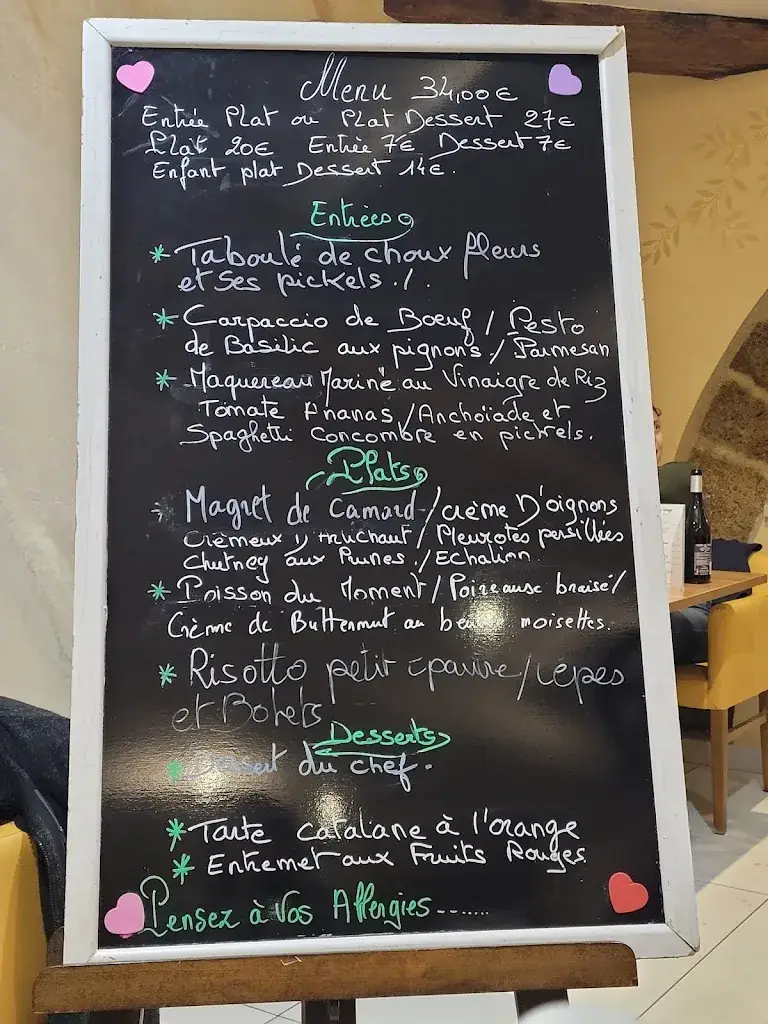 Menu 34,00€
Entrée Plat ou Plat Dessert 27€
Plat 20€ Entrée 7€ Dessert 7€
Enfant plat Dessert 14€.
Entrées
* Taboulé de choux fleurs
et ses pickels ./.
* Carpaccio de Boeuf / Pesto
de Basilic aux pignons / Parmesan
* Maquereau Mariné au Vinaigre de Riz
Tomate Ananas / Anchoïade et
Spaghetti concombre en pickels.
Plats
* Magret de Canard / crème D'oignons
Crémeux D'Artichaut / Pleurotes persillées
Chutney aux Prunes. / Echalion
* Poisson du Moment / Poireaux braisé /
Crème de Butternut au beurre noisettes.
* Risotto petit epautre / cèpes
et Bolets
Desserts
* Dessert du chef.
* Tarte catalane à l'orange
* Entremet aux Fruits Rouges
Pensez à Vos Allergies.......